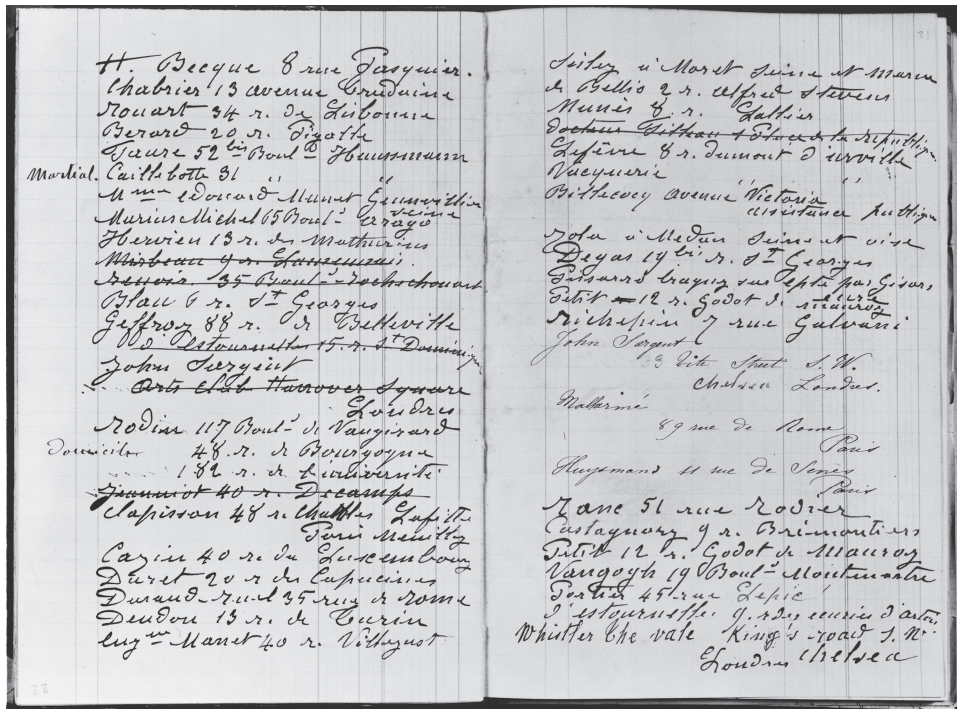 H. Becque 8 rue Pasquier.
Chabrier 13 avenue Trudaine
Rouart 34 r. de Lisbonne
Berard 20 r. Pigalle
Faure 52 bis Boul.d Haussmann
Martial. Caillebotte 31 " "
Mme edouard Manet Gennevilliers
seine
Marius Michel 65 Boul.d arago
Hervieu 13 r. des Mathurins
Mirbeau 9 r.
Renoir 35 Boul.d Rochechouart
Blau 6 r. St Georges
Geffroy 88 r. de Belleville
d'estournelles 15 r. St Dominique
John Sargent
Arts Club Hanover Square
Londres
Rodin 117 Boul.d de Vaugirard
Domicile 48 r. de Bourgogne
182 r. de l'université
Jeanniot 40 r. Decamps
Clapisson 48 r. Charles Lafitte
Paris Neuilly
Cazin 40 r. du Luxembourg
Duret 20 r. des Capucines
Durand-Ruel 35 rue de Rome
Deudon 13 r. de Turin
Eugne Manet 40 r. Villejust
22
21
Sisley à Moret Seine et Marne
de Bellio 2 r. Alfred Stevens
Munès 8 r. Lallier
Docteur 1 Place de la republique
Lefèvre 8 r. dumont d'urville
Vacquerie " "
avenue Victoria
assistance publique
Zola à Medan Seine et oise
Degas 19 bis r. St Georges
Pissarro Eragny sur epte par Gisors
eure
Petit 12 r. Godot de mauroy
Richepin 7 rue Galvani
John Sargent
33 Tite Street S. W.
Chelsea Londres.
Mallarmé
89 rue de Rome
Paris
Huysmans 11 rue de Sèvres
Paris
Ranc 51 rue Rodier
Castagnary 9 r. Brémontiers
Petit 12 r. Godot de Mauroy
Vangogh 19 Boul.d Montmartre
Portier 45 rue Lépic
d'estournelles 9 r des ecuries d'artois
Whistler the vale King's road S. W.
Londres Chelsea